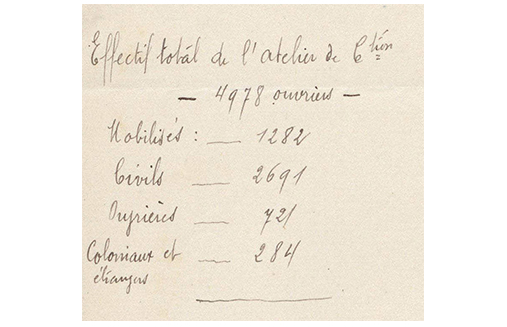 Effectif total de l'atelier de Ction
— 4978 ouvriers —
Mobilisés : — 1282
Civils — 2691
Ouvrières — 721
Coloniaux et — 284
étrangers